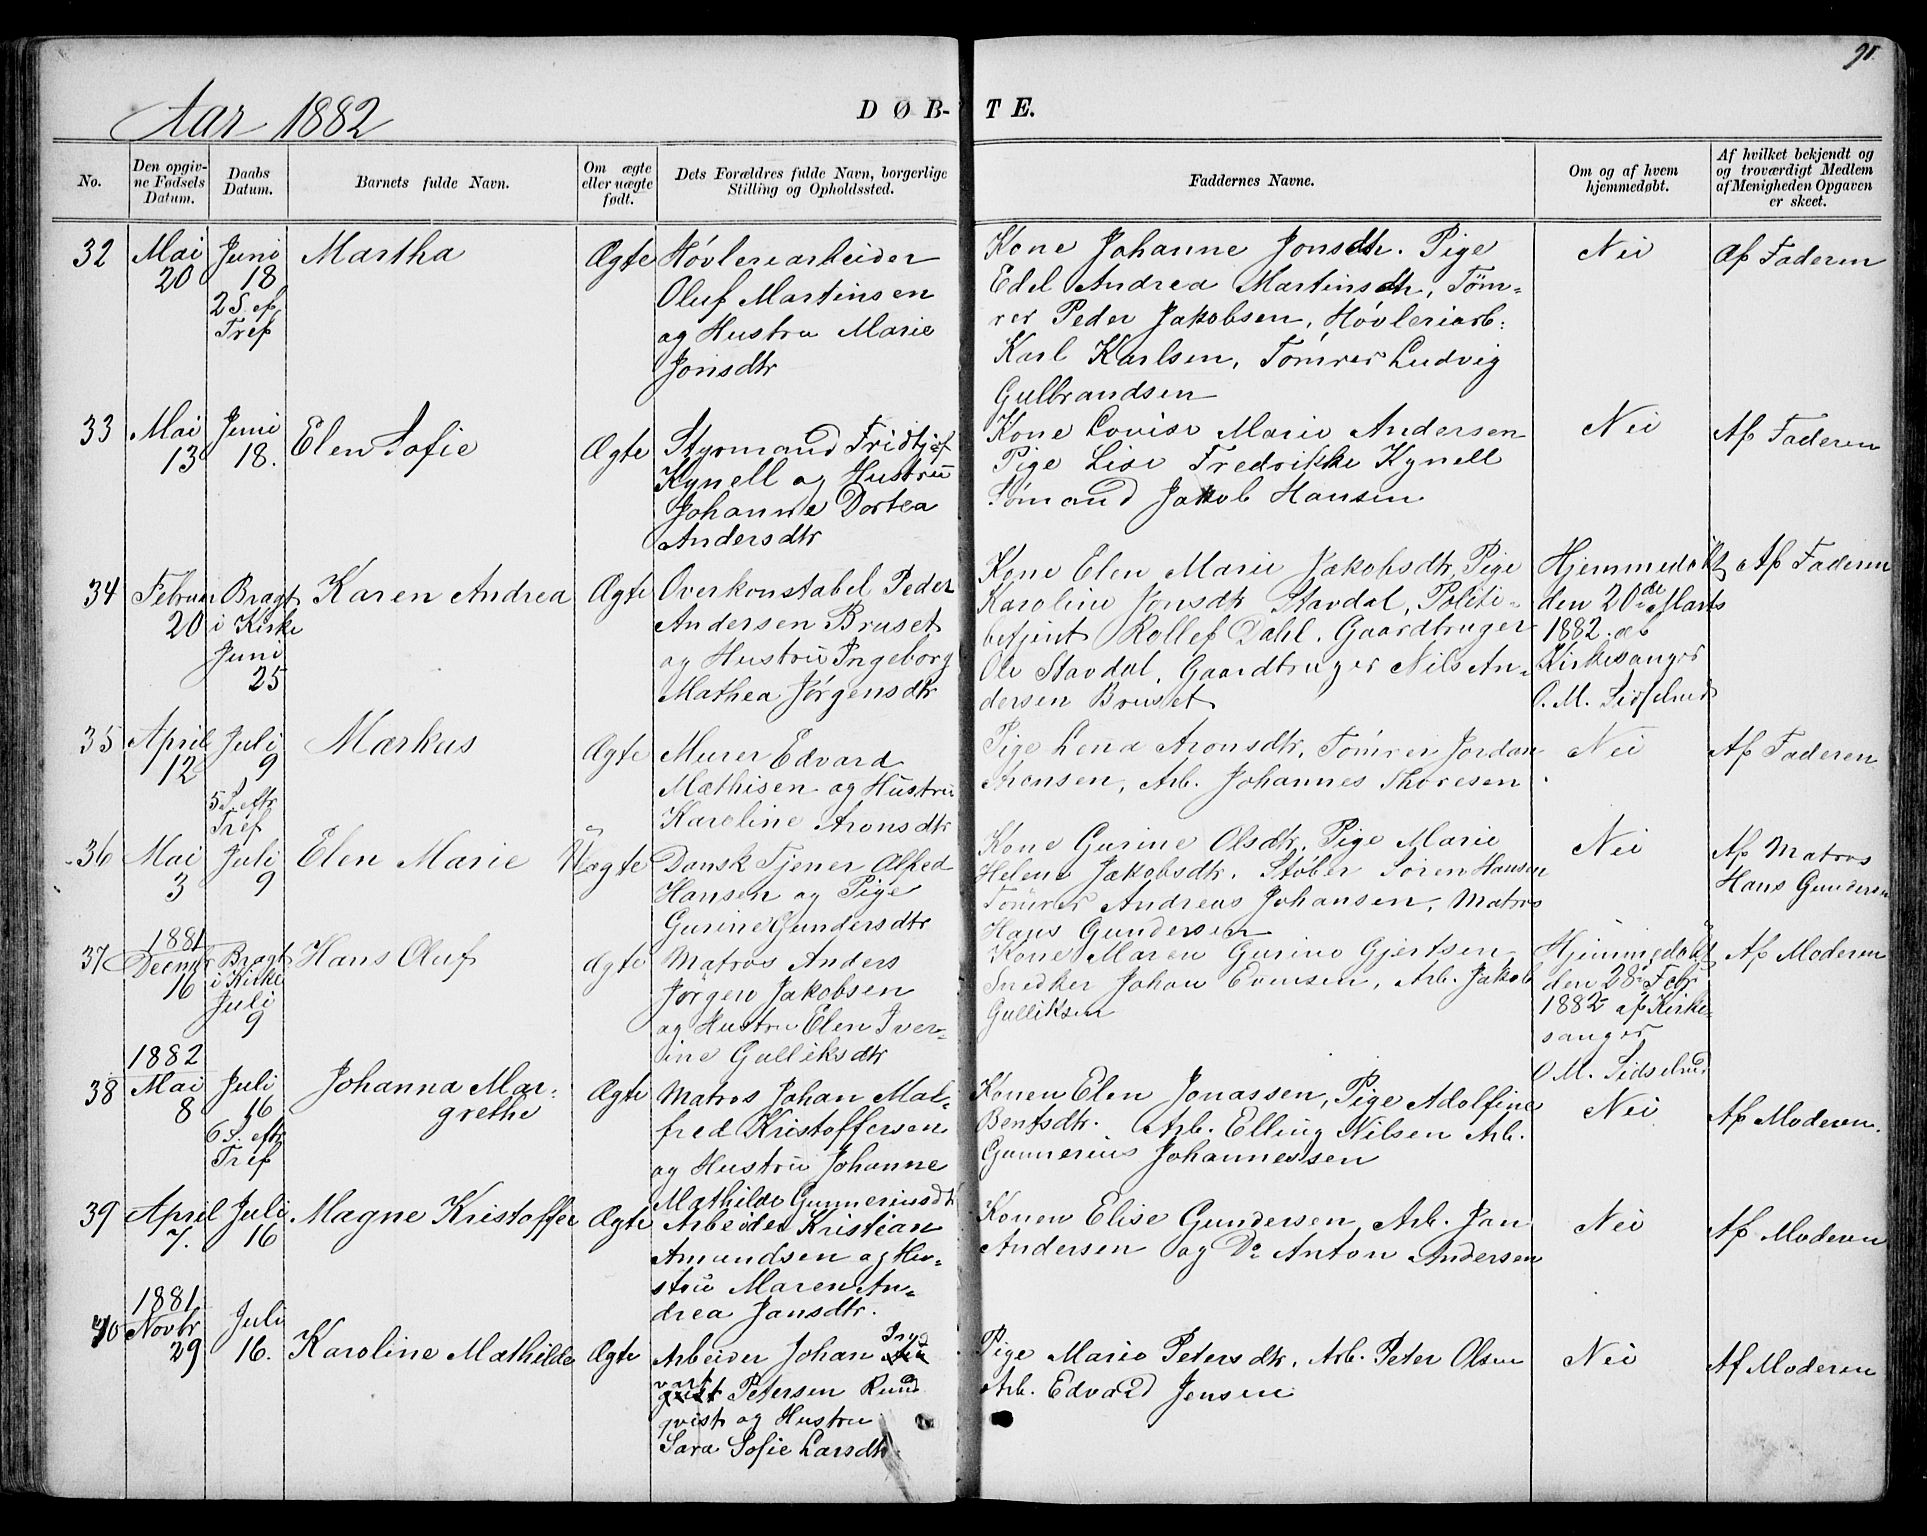 91.
Aar 1882
DØB-TE.
No.
Den opgivne Fødsels Datum.
Daabs Datum.
Barnets fulde Navn.
Om ægte eller uægte født.
Dets Forældres fulde Navn, borgerlige Stilling og Opholdssted.
Faddernes Navne.
Om og af hvem hjemmedøbt.
Af hvilket bekjendt og troværdigt Medlem af Menigheden Opgaven er skeet.
32
Mai
20
Juni
18
2 S. ef.
Tref
Martha
Ægte
Høvleriarbeider
Oluf Martinsen
og Hustru Marie
Jonsdtr
Kone Johanne Jonsdtr. Pige
Edel Andrea Martinsdtr, Tøm-
rer Peder Jakobsen, Høvleriarb.
Karl Karlsen, Tømrer Ludvig
Gulbrandsen
Nei
Af Faderen
33
Mai
13
Juni
18.
Elen Sofie
Ægte
Styrmand Fridtjof
Kynell og Hustru
Johanne Dortea
Andersdtr
Kone Lovise Marie Andersen
Pige Lise Fredrikke Kynell
Sømand Jakob Hansen
Nei
Af Faderen
34
Februar
20
Bragt
i Kirke
Juni
25
Karen Andrea
Ægte
Overkonstabel Peder
Andersen Bruset
og Hustru Ingeborg
Mathea Jørgensdtr
Kone Elen Marie Jakobsdtr, Pige
Karoline Jonsdtr Stavdal, Politi-
betjent Rollef Dahl. Gaardbruger
Ole Stavdal, Gaardbruger Nils An-
dersen Bruset
Hjemmedøbt
den 20de Marts
1882 af
Kirkesanger
O. M. Sidselrud
Af Faderen
35
April
12
Juli
9
5 S. eftr
Tref
Markus
Ægte
Murer Edvard
Mathisen og Hustru
Karoline Aronsdtr
Pige Lena Aronsdtr, Tømrer Jordan
Sørensen, Arb. Johannes Thoresen
Nei
Af Faderen
36
Mai
3
Juli
9
Elen Marie
Uægte
Dansk Tjener Alfred
Hansen og Pige
Gurine Gundersdtr
Kone Gurine Olsdtr, Pige Marie
Helene Jakobsdtr. Støber Søren Hansen
Tømrer Andreas Johansen, Matros
Hans Gundersen
Nei
Af Matros
Hans Gundersen
37
1881
Decmbr
16
Bragt
i Kirke
Juli
9
Hans Oluf
ægte
Matros Anders
Jørgen Jakobsen
og Hustru Elen Iver-
ine Gulliksdtr
Kone Maren Gurine Gjertsen
Snedker Johan Evensen, Arb. Jakob
Gulliksen
Hjemmedøbt
den 28 Febr
1882 af Kirke-
sanger
O. M. Sidselrud
Af Moderen
38
1882
Mai
8
Juli
16
6 S. eftr
Tref
Johanna Mar-
grethe
Ægte
Matros Johan Mal-
fred Kristoffersen
og Hustru Johanne
Mathilde Gunneriusdtr
Konen Elen Jonassen, Pige Adolfine
Bentsdtr. Arb. Elling Nilsen Arb.
Gunnerius Johannessen
Nei
Af Moderen.
39
April
7.
Juli
16
Magne Kristoffer
Ægte
Arbeider Kristian
Amundsen og Hu-
stru Maren An-
drea Jansdtr.
Konen Elise Gundersen, Arb. Jan
Andersen og Do Anton Andersen
Nei
Af Moderen
40
1881
Novbr
29
Juli
16.
Karoline Mathilde
Ægte
Arbeider Johan Ing
vart Petersen Rund
qvist og Hustru
Sara Sofie Larsdtr
Pige Marie Petersdtr, Arb. Peter Olsen
Arb. Edvard Jensen
Nei
Af Moderen